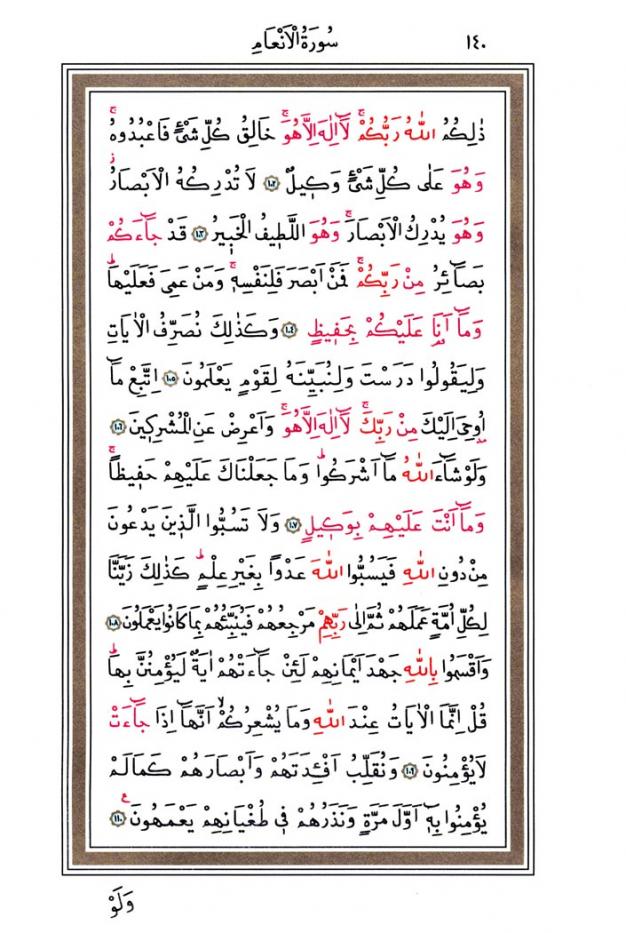 ١٤٠
سُورَةُ الْاَنْعَامِ
ذٰلِكُمُ اللّٰهُ رَبُّكُمْۚ لَٓا اِلٰهَ اِلَّا هُوَۚ خَالِقُ كُلِّ شَيْءٍ فَاعْبُدُوهُۚ
وَهُوَ عَلٰى كُلِّ شَيْءٍ وَك۪يلٌ ﴿١٠٢﴾ لَا تُدْرِكُهُ الْاَبْصَارُۘ
وَهُوَ يُدْرِكُ الْاَبْصَارَۚ وَهُوَ اللَّط۪يفُ الْخَب۪يرُ ﴿١٠٣﴾ قَدْ جَٓاءَكُمْ
بَصَٓائِرُ مِنْ رَبِّكُمْۚ فَمَنْ اَبْصَرَ فَلِنَفْسِه۪ۚ وَمَنْ عَمِيَ فَعَلَيْهَاۜ
وَمَٓا اَنَا۬ عَلَيْكُمْ بِحَف۪يظٍ ﴿١٠٤﴾ وَكَذٰلِكَ نُصَرِّفُ الْاٰيَاتِ
وَلِيَقُولُوا دَرَسْتَ وَلِنُبَيِّنَهُ لِقَوْمٍ يَعْلَمُونَ ﴿١٠٥﴾ اِتَّبِعْ مَٓا
اُو۫حِيَ اِلَيْكَ مِنْ رَبِّكَۚ لَٓا اِلٰهَ اِلَّا هُوَۚ وَاَعْرِضْ عَنِ الْمُشْرِك۪ينَ ﴿١٠٦﴾
وَلَوْ شَٓاءَ اللّٰهُ مَٓا اَشْرَكُواۜ وَمَا جَعَلْنَاكَ عَلَيْهِمْ حَف۪يظًاۚ
وَمَٓا اَنْتَ عَلَيْهِمْ بِوَك۪يلٍ ﴿١٠٧﴾ وَلَا تَسُبُّوا الَّذ۪ينَ يَدْعُونَ
مِنْ دُونِ اللّٰهِ فَيَسُبُّوا اللّٰهَ عَدْوًا بِغَيْرِ عِلْمٍۜ كَذٰلِكَ زَيَّنَّا
لِكُلِّ اُمَّةٍ عَمَلَهُمْ ثُمَّ اِلٰى رَبِّهِمْ مَرْجِعُهُمْ فَيُنَبِّئُهُمْ بِمَا كَانُوا يَعْمَلُونَ ﴿١٠٨﴾
وَاَقْسَمُوا بِاللّٰهِ جَهْدَ اَيْمَانِهِمْ لَئِنْ جَٓاءَتْهُمْ اٰيَةٌ لَيُؤْمِنُنَّ بِهَاۜ
قُلْ اِنَّمَا الْاٰيَاتُ عِنْدَ اللّٰهِ وَمَا يُشْعِرُكُمْۙ اَنَّهَٓا اِذَا جَٓاءَتْ
لَا يُؤْمِنُونَ ﴿١٠٩﴾ وَنُقَلِّبُ اَفْـِٔدَتَهُمْ وَاَبْصَارَهُمْ كَمَا لَمْ
يُؤْمِنُوا بِه۪ٓ اَوَّلَ مَرَّةٍ وَنَذَرُهُمْ ف۪ي طُغْيَانِهِمْ يَعْمَهُونَ ﴿١١٠﴾ ع
وَلَوْ